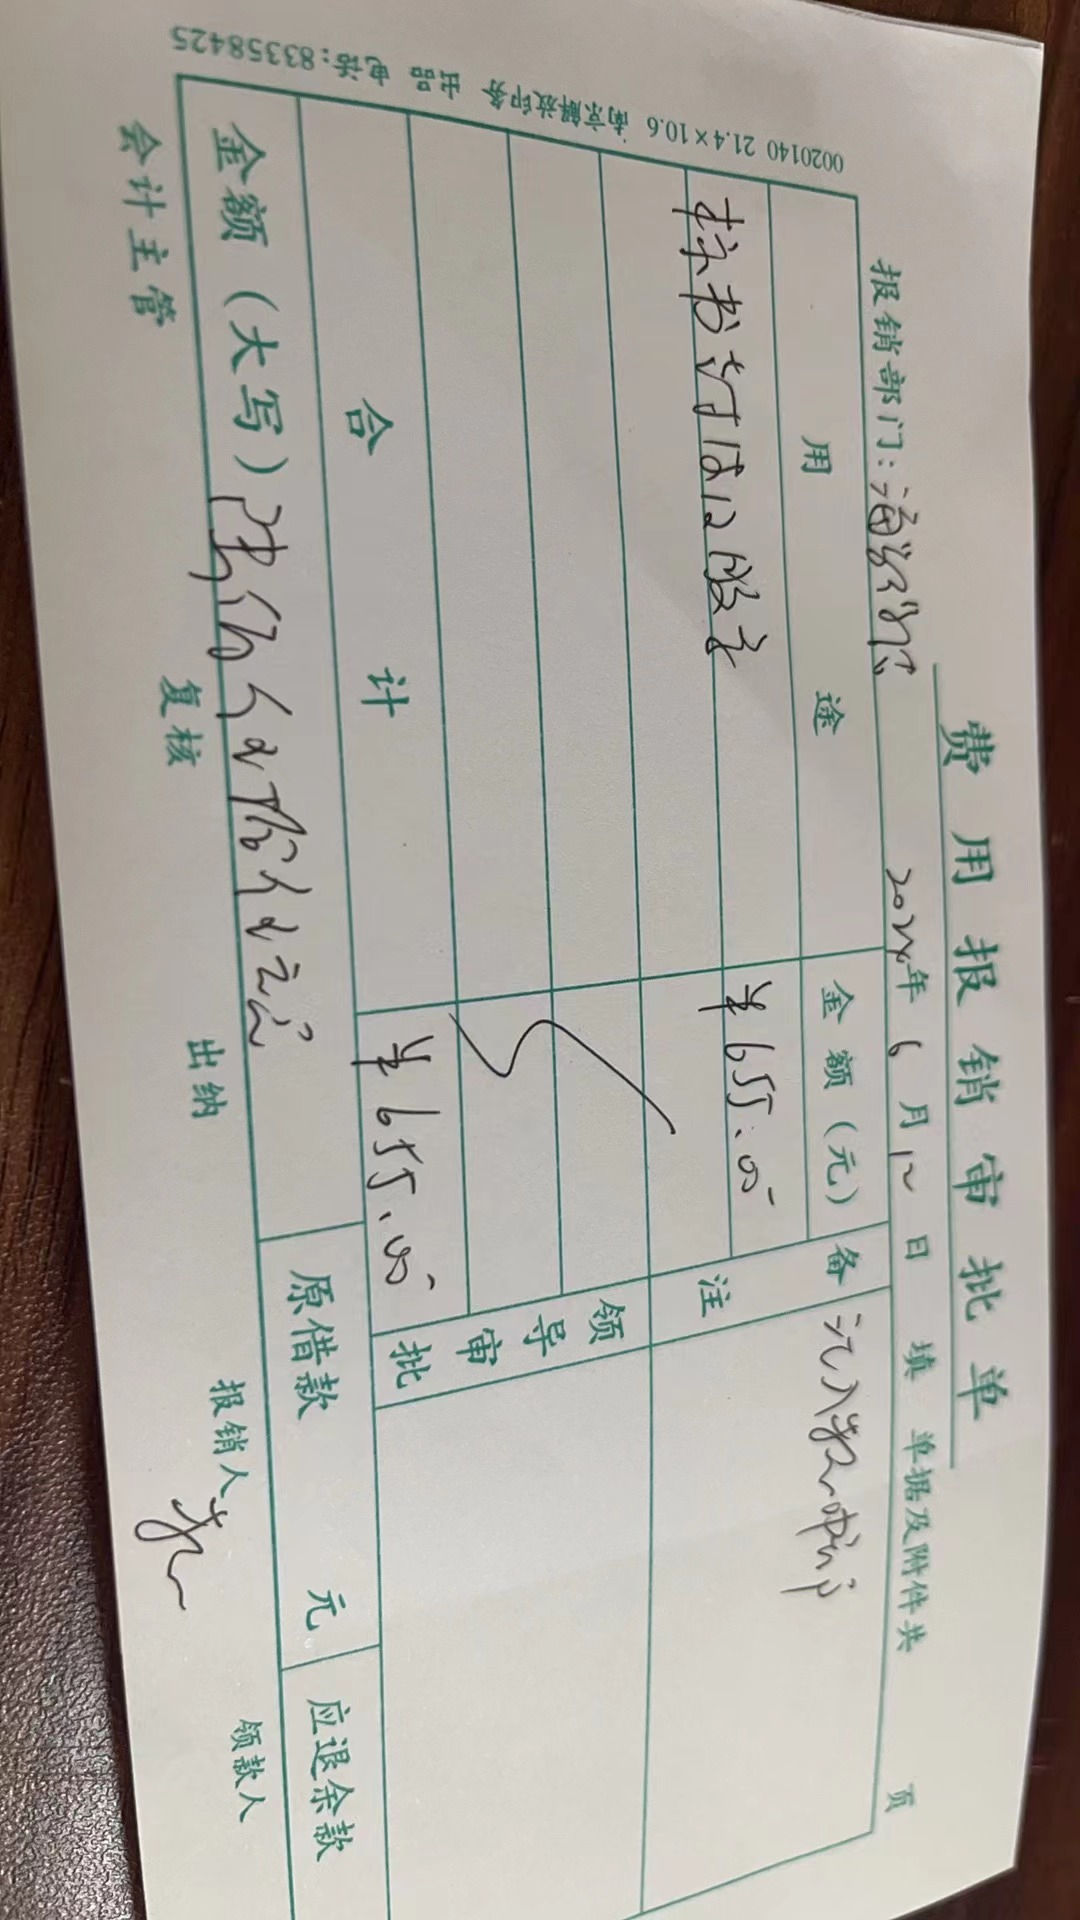 费用报销审批单
报销部门： 2024年6月12日 填 单据及附件共 页
用途 金额（元） 备注
标书打 ¥655.00
合计 ¥655.00
领导审批
金额（大写） 陆佰伍拾伍元 原借款 元 应退余款
会计主管 复核 出纳 报销人 领款人
0020140 21.4×10.6 南京解放印务 出品 电话:83358425